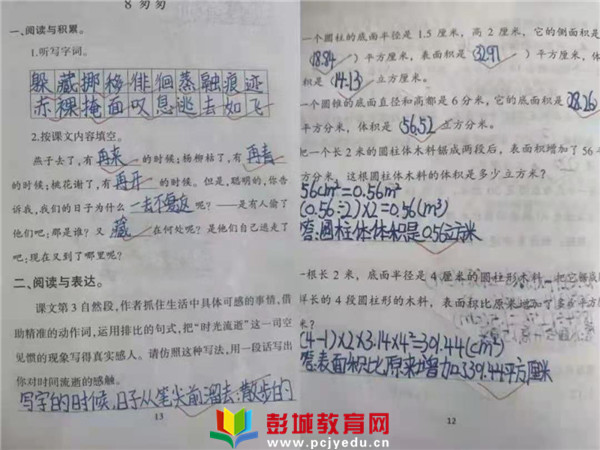 8 匆匆
一、阅读与积累。
1.听写字词。
躲藏挪移徘徊蒸融痕迹
赤裸掩面叹息逃去如飞
2.按课文内容填空。
燕子去了,有再来的时候;杨柳枯了,有再青
的时候;桃花谢了,有再开的时候。但是,聪明的,你告
诉我,我们的日子为什么一去不复返呢?——是有人偷了
他们吧:那是谁?又藏在何处呢?是他们自己逃走了
吧:现在又到了哪里呢?
二、阅读与表达。
课文第3自然段,作者抓住生活中具体可感的事情,借
助精准的动作词,运用排比的句式,把“时光流逝”这一司空
见惯的现象写得真实感人。请仿照这种写法,用一段话写出
你对时间流逝的感触。
写字的时候,日子从笔尖前溜去;散步的
13
一个圆柱的底面半径是 1.5 厘米,高 2 厘米,它的侧面积是
(18.84)平方厘米,表面积是(32.97)平方厘米,体
积是(14.13)立方厘米。
一个圆锥的底面直径和高都是 6 分米,它的底面积是(28.26)
平方分米,体积是(56.52)立方分米。
把一个长 2 米的圆柱体木料锯成两段后,表面积增加了 56
方分米,这根圆柱体木料的体积是多少立方米?
56cm²=0.56m²
(0.56÷2)×2=0.56(m³)
答:圆柱体体积是0.56立方米
一根长 2 米,底面半径是 4 厘米的圆柱形木料,把它锯成
样长的 4 段圆柱形的木料,表面积比原来增加了多少平方
米?
(4-1)×2×3.14×4²=301.44(cm²)
答:表面积比原来增加339.44平方厘米
12
彭城教育网
www.pcjyedu.cn